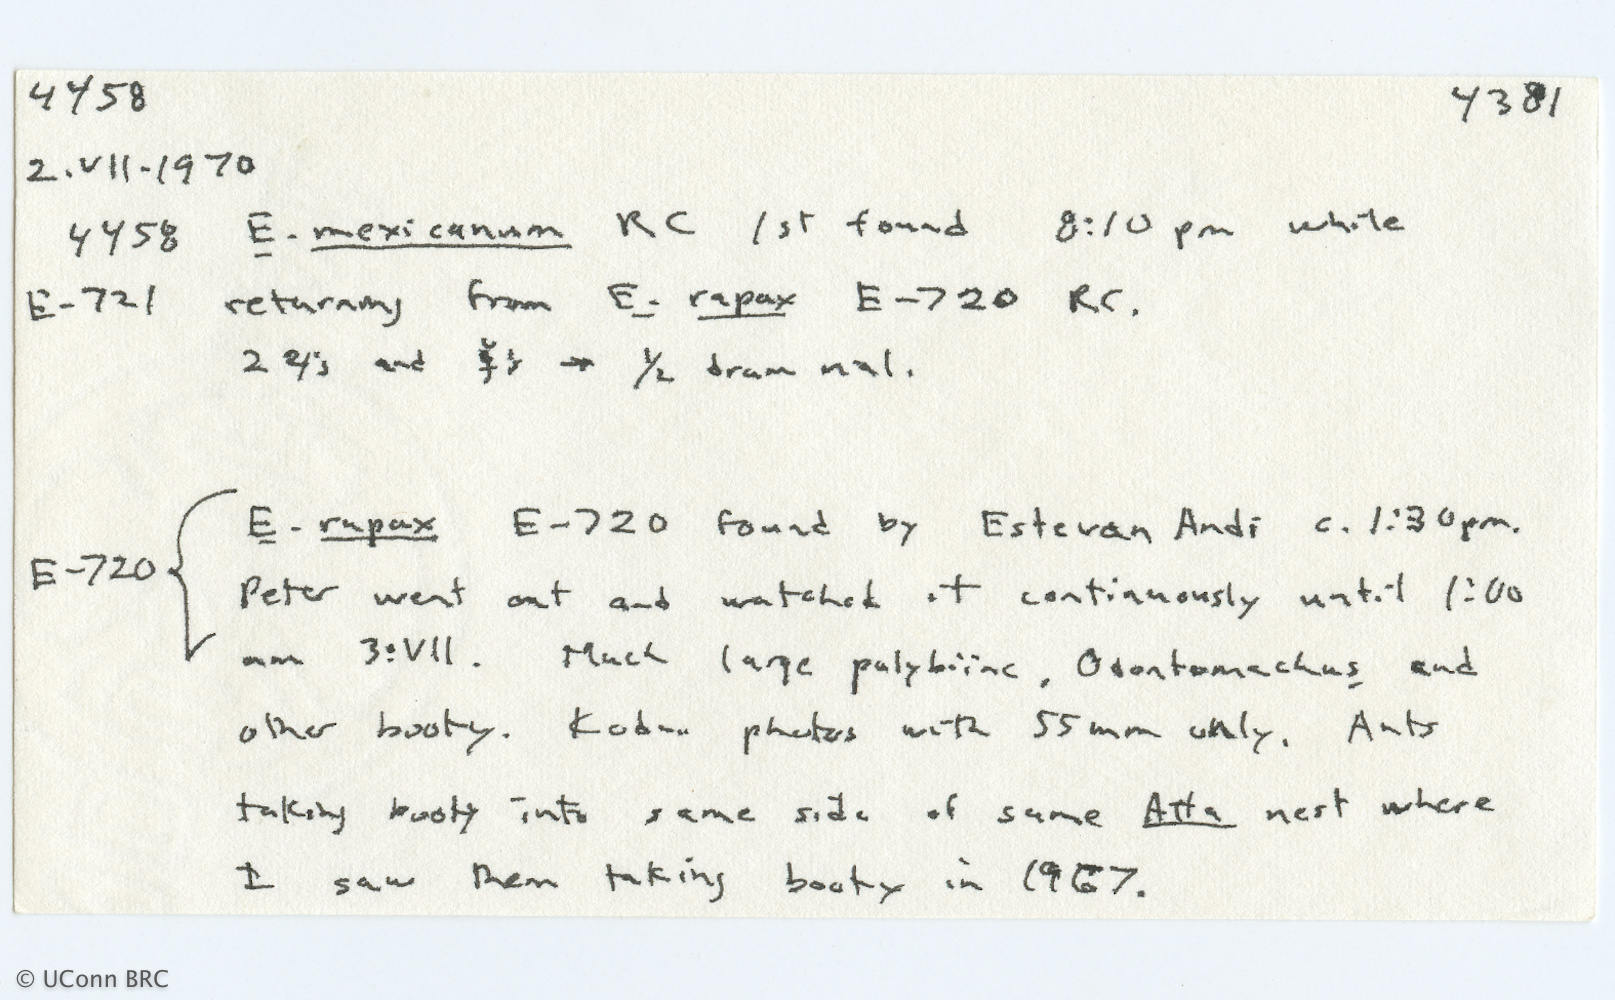 4458 4381
2.VII-1970
4458 E. mexicanum RC 1st found 8:10 pm while
E-721 returning from E. rapax E-720 RC.
2 ♃'s and ☿'s → 1/2 dram vial.
E. rapax E-720 found by Estevan Andi c. 1:30pm.
E-720 Peter went out and watched it continuously until 1:00
am 3:VII. Much large polybiine, Odontomachus and
other booty. photos with 55mm only. Ants
taking booty into same side of same Atta nest where
I saw them taking booty in 1967.
© UConn BRC